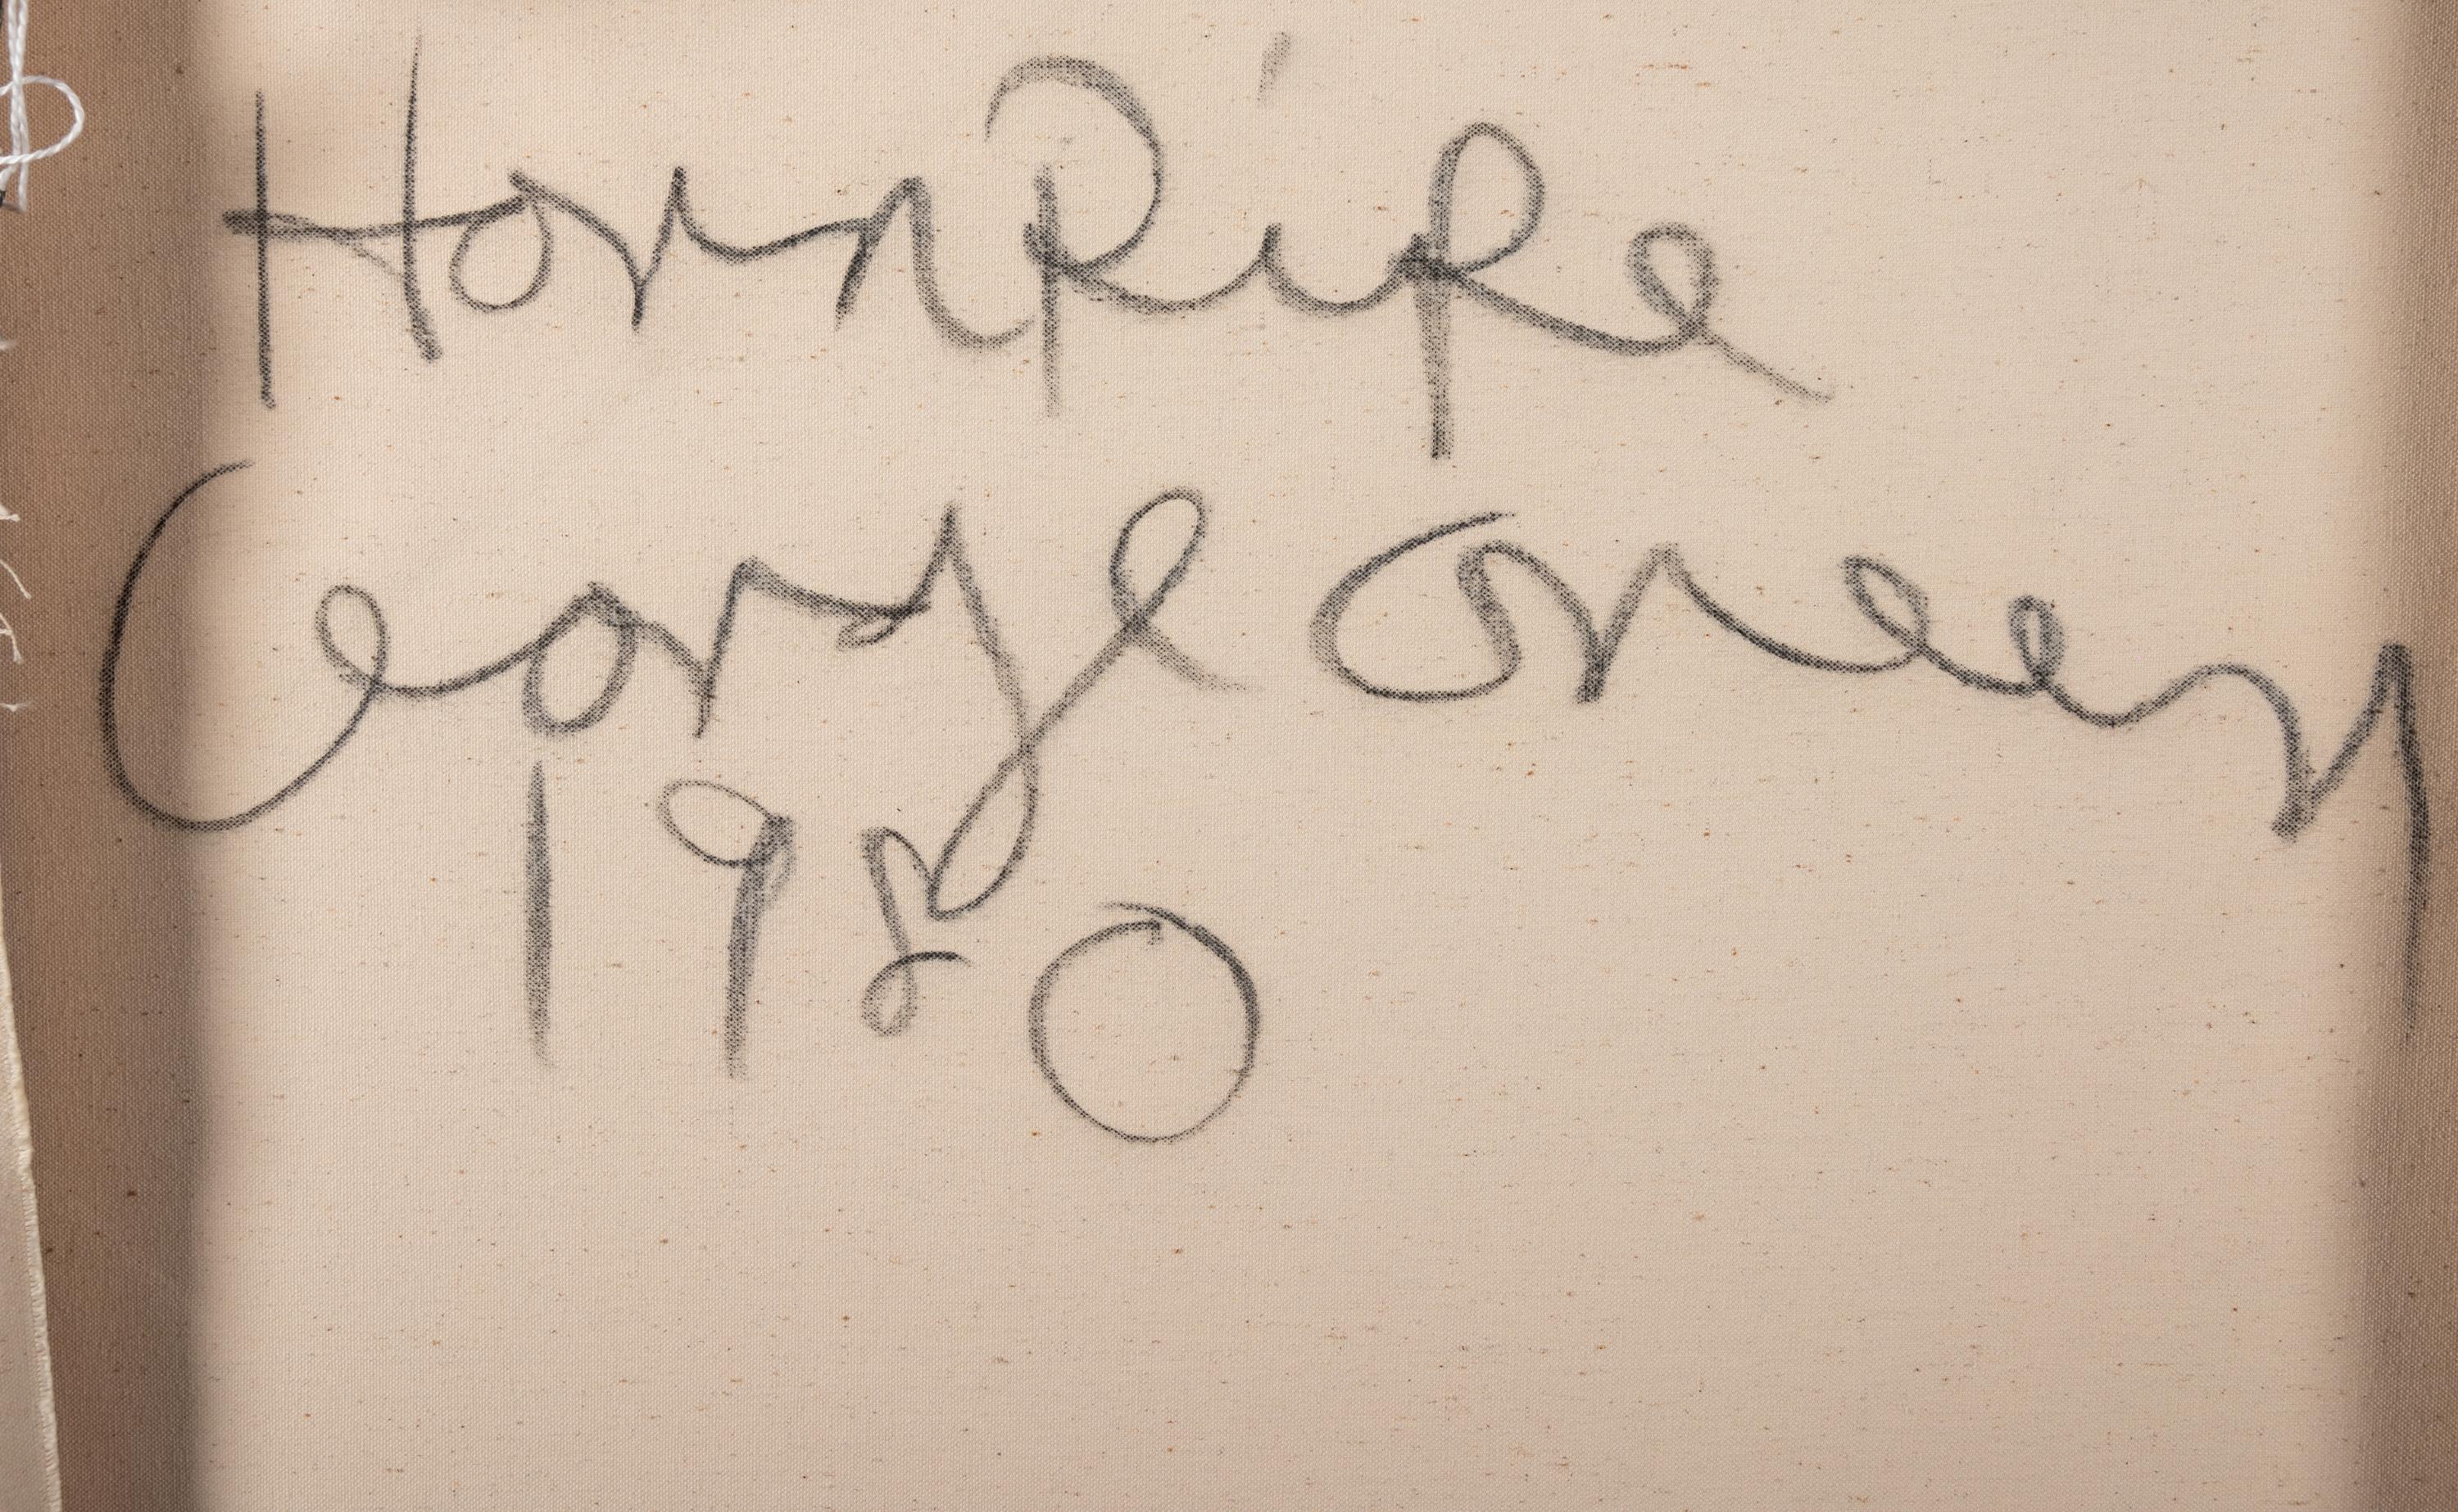 HornPipe
George Green
1980